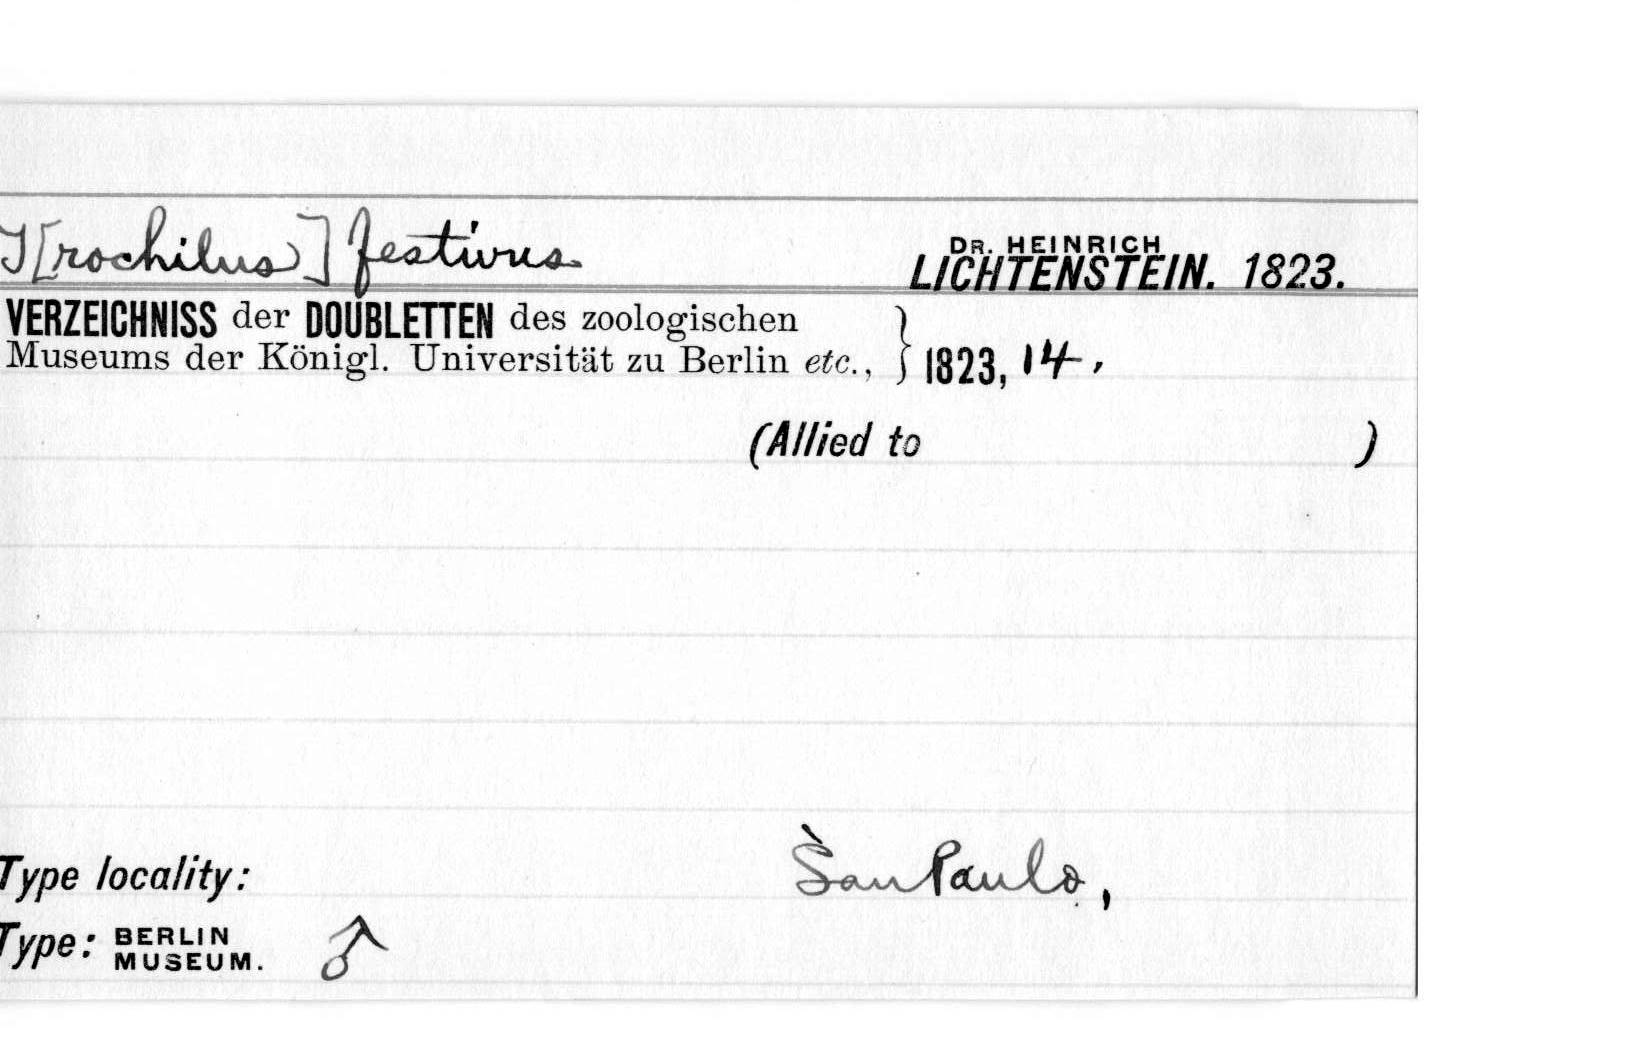 T[rochilus] festivus
DR. HEINRICH
LICHTENSTEIN. 1823.
VERZEICHNISS der DOUBLETTEN des zoologischen
Museums der Königl. Universität zu Berlin etc., } 1823, 14,
(Allied to )
Type locality: San Paulo,
Type: BERLIN MUSEUM. ♂